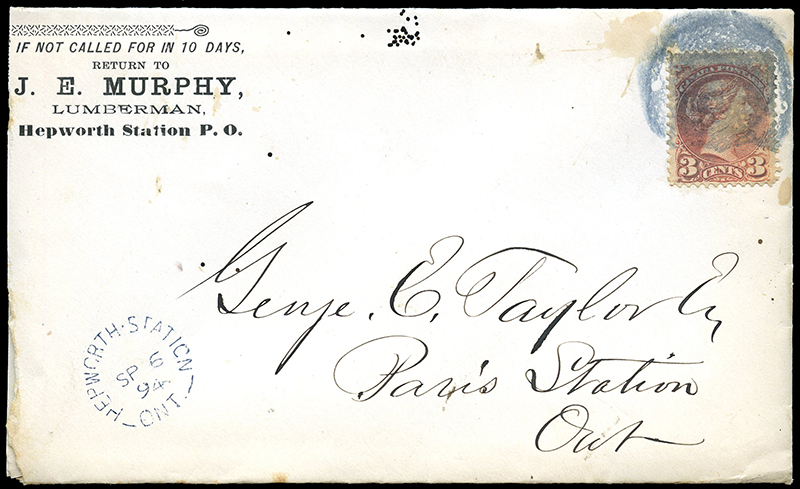 IF NOT CALLED FOR IN 10 DAYS,
RETURN TO
J. E. MURPHY,
LUMBERMAN,
Hepworth Station P. O.
CANADA POSTAGE
3 CENTS 3
George. E. Taylor Esq
Paris Station
Ont
HEPWORTH·STATION
SP 6
94
ONT.